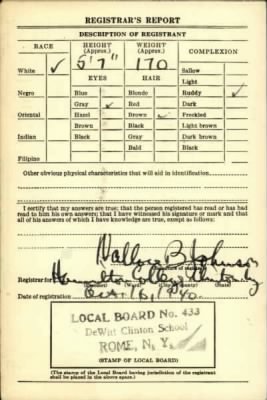 REGISTRAR'S REPORT
DESCRIPTION OF REGISTRANT
RACE HEIGHT (Approx.) WEIGHT (Approx.) COMPLEXION
White ✓ 5'7" 170 Sallow
EYES HAIR Light
Negro Blue Blonde Ruddy ✓
Gray ✓ Red Dark
Oriental Hazel Brown ✓ Freckled
Brown Black Light brown
Indian Black Gray Dark brown
Bald Black
Filipino
Other obvious physical characteristics that will aid in identification
I certify that my answers are true; that the person registered has read or has had
read to him his own answers; that I have witnessed his signature or mark and that
all of his answers of which I have knowledge are true, except as follows:
Wallace B Johnson
Registrar for Hamilton College Clinton
(City or County) (State)
Date of registration Oct. 16, 1940
LOCAL BOARD No. 433
DeWitt Clinton School
ROME, N. Y.
(STAMP OF LOCAL BOARD)
(The stamp of the Local Board having jurisdiction of the registrant
shall be placed in the above space.)